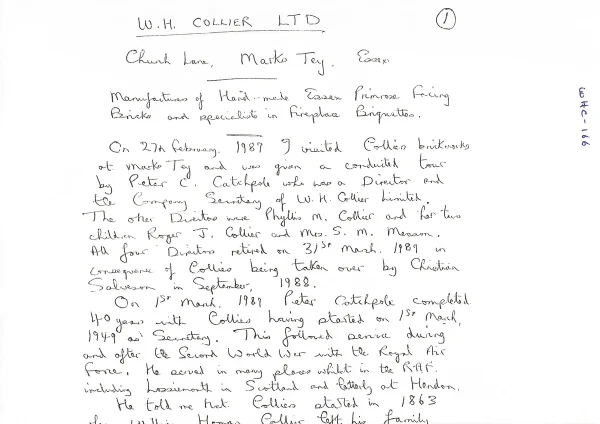 W.H. COLLIER LTD
1
Church Lane, Marks Tey, Essex
Manufacturers of Hand-made Essex Primrose Facing
Bricks and specialists in Fireplace Briquettes.
WHC-166
On 27th February, 1989 I visited Colliers brickworks
at Marks Tey and was given a conducted tour
by Peter C. Catchpole who was a Director and
the Company Secretary of W.H. Collier Limited.
The other Directors were Phyllis M. Collier and her two
children Roger J. Collier and Mrs. S. M. Measom.
All four Directors retired on 31st March, 1989 in
consequence of Colliers being taken over by Christian
Salveson in September, 1988.
On 1st March, 1989 Peter Catchpole completed
40 years with Colliers having started on 1st March,
1949 as Secretary. This followed service during
and after the Second World War with the Royal Air
Force. He served in many places whilst in the R.A.F.
including Lossiemouth in Scotland and latterly at Hendon.
He told me that Colliers started in 1863
Collier left his family